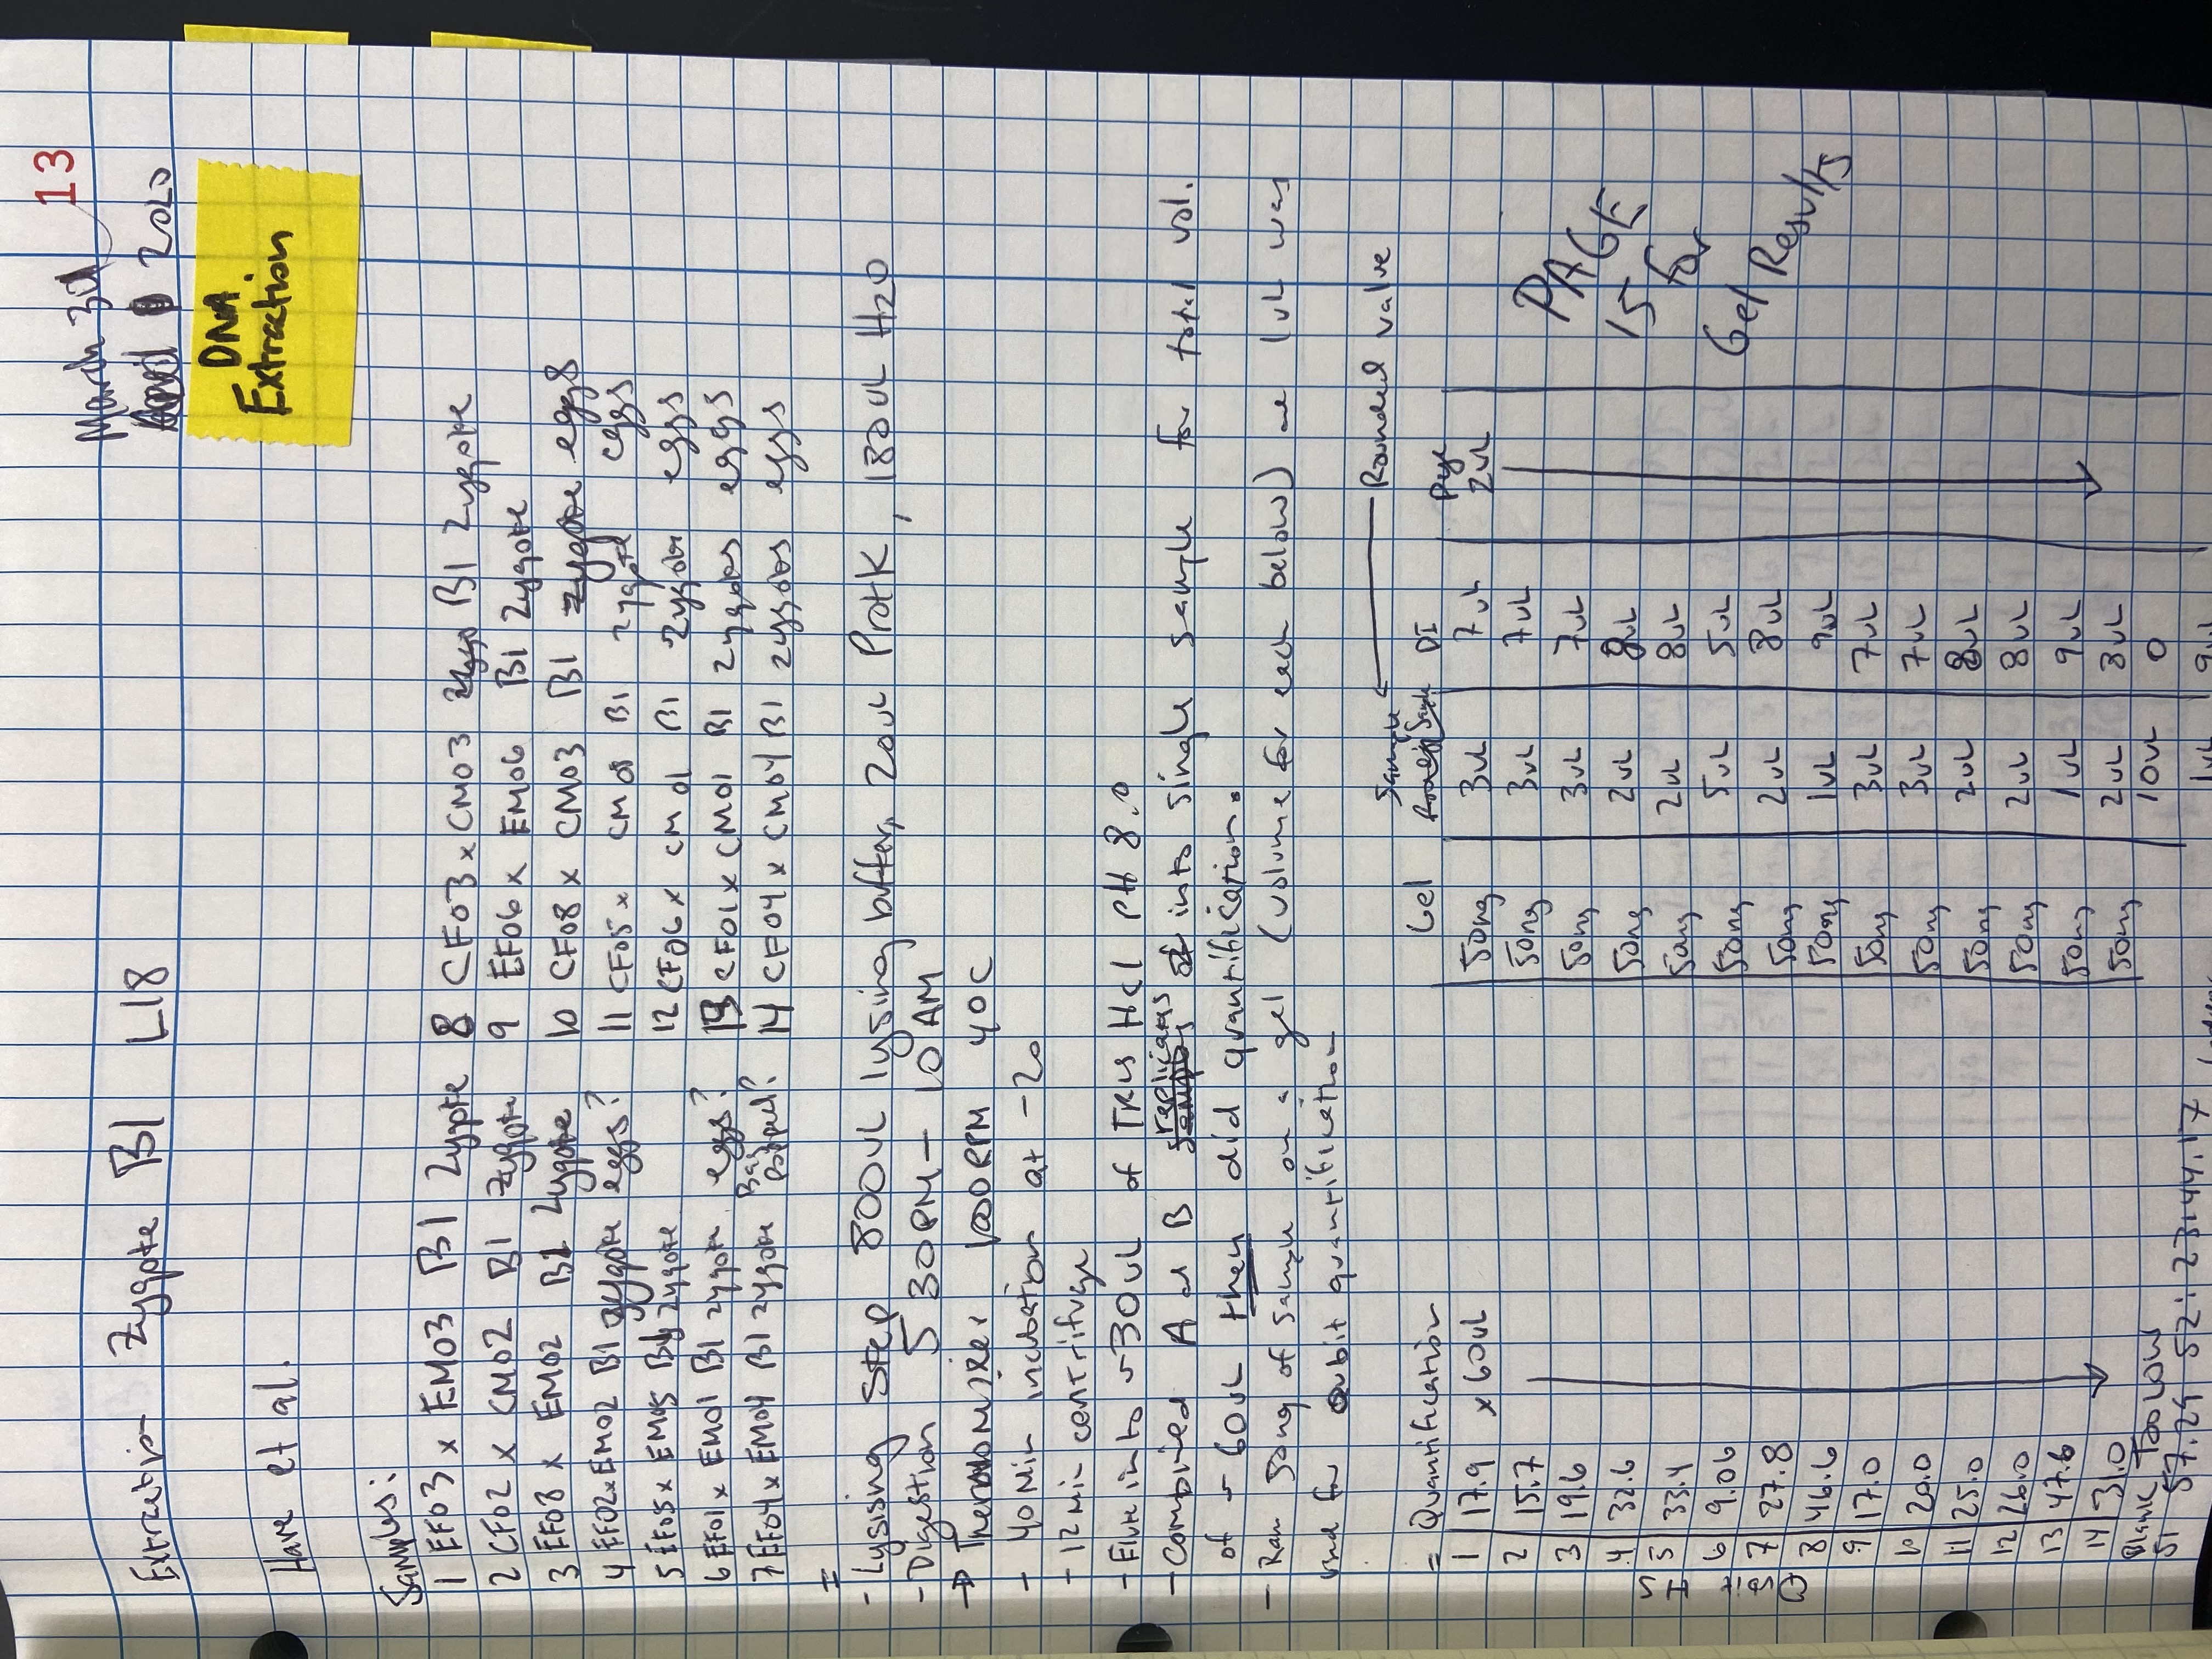 13
March 30
2020
Extraction Zygote B1 L18
DNA
Extraction
Hare et al.
Samples:
1 EF03 x EM03 B1 Zygote 8 CF03 x CM03 B1 Zygote
2 CF02 x CM02 B1 Zygote 9 EF06 x EM06 B1 Zygote
3 EF08 x EM02 B1 Zygote 10 CF08 x CM03 B1 zygote eggs
4 EF02 x EM02 B1 zygote eggs? 11 CF05 x CM08 B1 zygote eggs
5 EF05 x EM05 B1 zygote 12 CF06 x CM01 B1 zygotes eggs
6 EF01 x EM01 B1 zygote eggs? 13 CF01 x CM01 B1 zygotes eggs
7 EF04 x EM04 B1 zygote Bag popped? 14 CF04 x CM04 B1 zygotes eggs
=
- Lysising step 800uL lysing buffer, 20uL ProtK, 180uL H2O
- Digestion 5 30PM - 10 AM
→ Thermomixer 1000RPM 40C
- 40 Min incubation at -20
- 12 Min centrifuge
- Elute into ~30uL of TRIS HCl pH 8.0
- Combined A and B replicates into single sample for total vol.
of ~ 60uL then did quantification.
- Ran 50ng of sample on a gel (volume for each below) and 1uL was
used for Qubit quantification
Sample ← Rounded value
= Quantification Gel DI Dye
Qubit HS
1 17.9 x 60uL 50ng 3uL 7uL 2uL
2 15.7 50ng 3uL 7uL
3 19.6 50ng 3uL 7uL
4 32.6 50ng 2uL 8uL
5 33.4 50ng 2uL 8uL
6 9.06 50ng 5uL 5uL
7 27.8 50ng 2uL 8uL
8 46.6 50ng 1uL 9uL
9 17.0 50ng 3uL 7uL
10 20.0 50ng 3uL 7uL
11 25.0 50ng 2uL 8uL
12 26.0 50ng 2uL 8uL
13 47.6 50ng 1uL 9uL
14 31.0 50ng 2uL 8uL
Blank Too LOW 10uL 0
S1 57.29 S2: 23144.17
1uL 9uL
PAGE
15
for
Gel Results